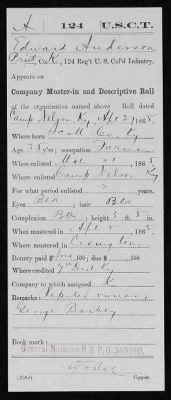 A 124 U.S.C.T.
Edward Anderson
Prvt., Co. K, 124 Reg't U. S. Col'd Infantry.
Appears on
Company Muster-in and Descriptive Roll
of the organization named above. Roll dated
Camp Nelson, Ky, 186
Where born Scott Co. Ky
Age 38 y'rs; occupation Farmer
When enlisted 186
Where enlisted Camp Nelson Ky
For what period enlisted 3 years.
Eyes Blk; hair Blk
Complexion Blk; height 5 ft. 8 in.
When mustered in 186
Where mustered in Lexington
Bounty paid $ 100; due $ 100
Where credited 7" Dist Ky
Company to which assigned K
Remarks: reputed owner,
George
Book mark:
General Notation R & P O.
(356d) Copyist.